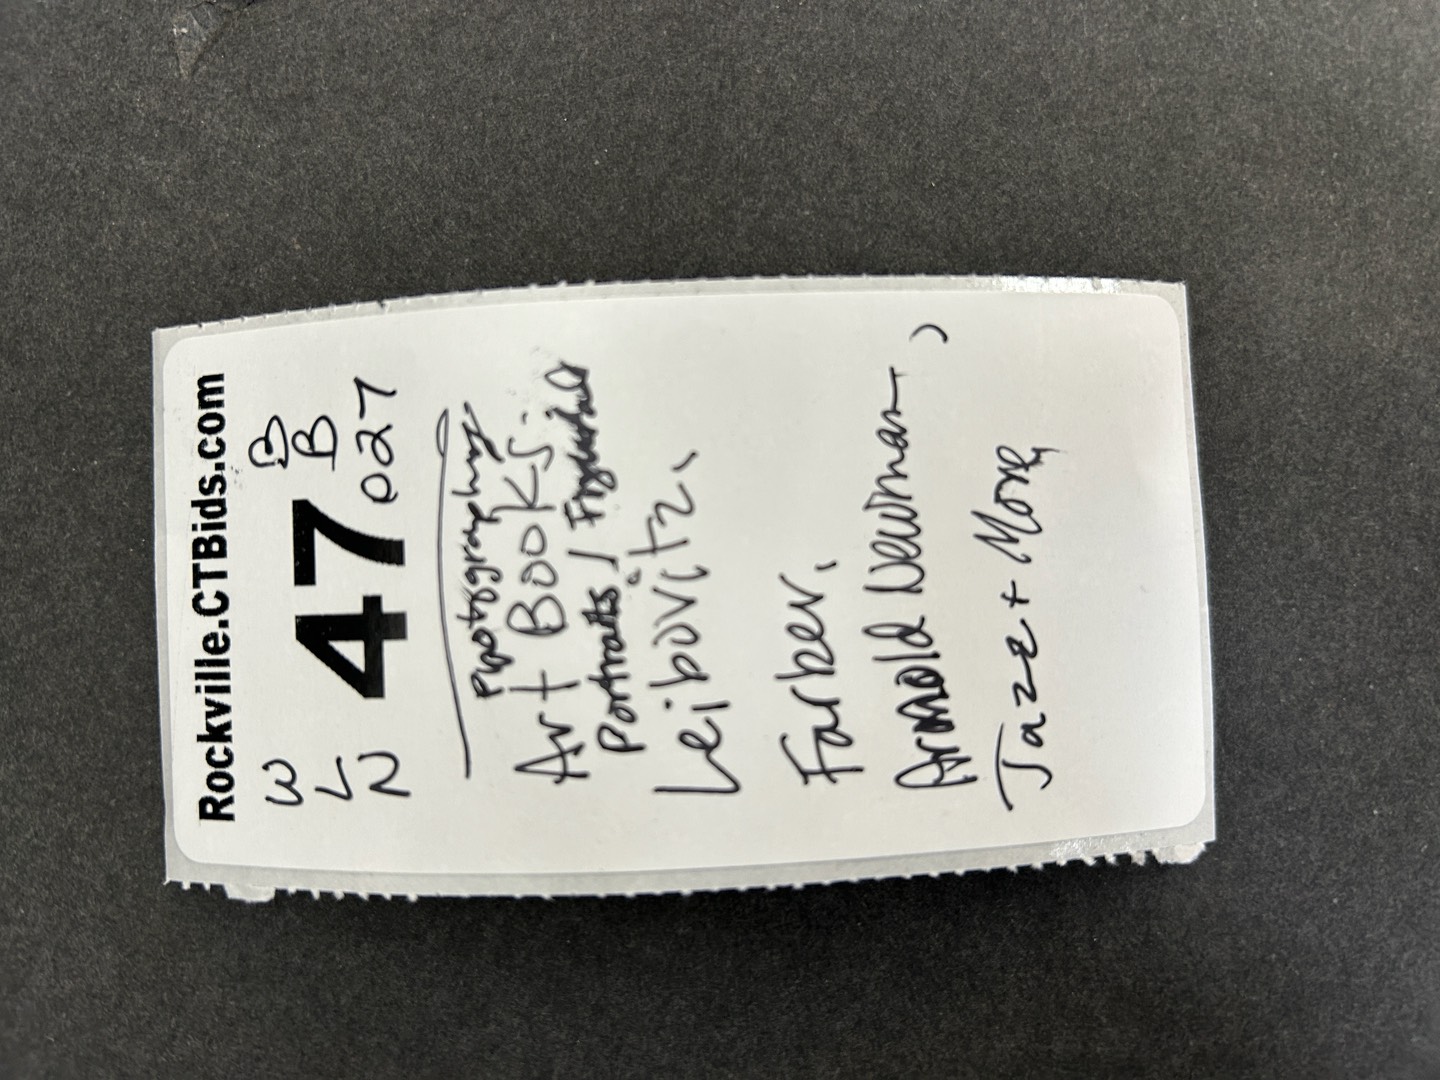 Rockville.CTBids.com
W B
L 47 B
N 027
Photography
Art Books.
Portraits /
Leibovitz,
Farber,
Arnold Newman,
Jazz + More